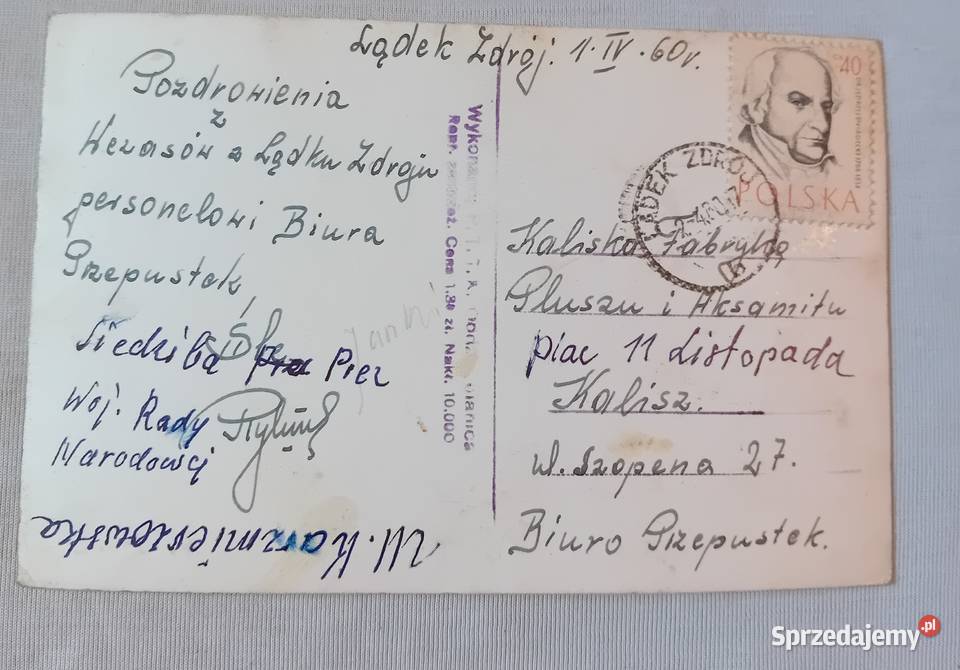 Lądek Zdrój. 1. IV. 60r.
Pozdrowienia
z
Wczasów z Lądku Zdroju
personelowi Biura
Przepustek
Siedziba Prez
Woj. Rady
Narodowej
M. Kaźmierowska
40
POLSKA
LĄDEK ZDRÓJ
Kaliska Fabryka
Pluszu i Aksamitu
plac 11 Listopada
Kalisz.
ul. Szopena 27.
Biuro Przepustek.
Cena 1.30 zł. Nakł. 10.000
Sprzedajemy.pl